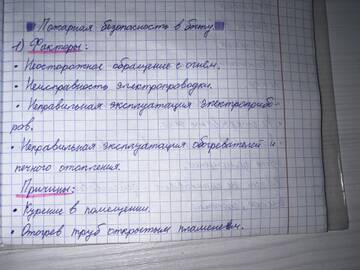 Пожарная безопасность в быту.
1) Факторы:
• Неосторожное обращение с огнём.
• Неисправность электропроводки.
• Неправильная эксплуатация электроприбо-
ров.
• Неправильная эксплуатация обогревателей и
печного отопления.
Причины:
• Курение в помещении.
• Отогрев труб открытым пламенем.